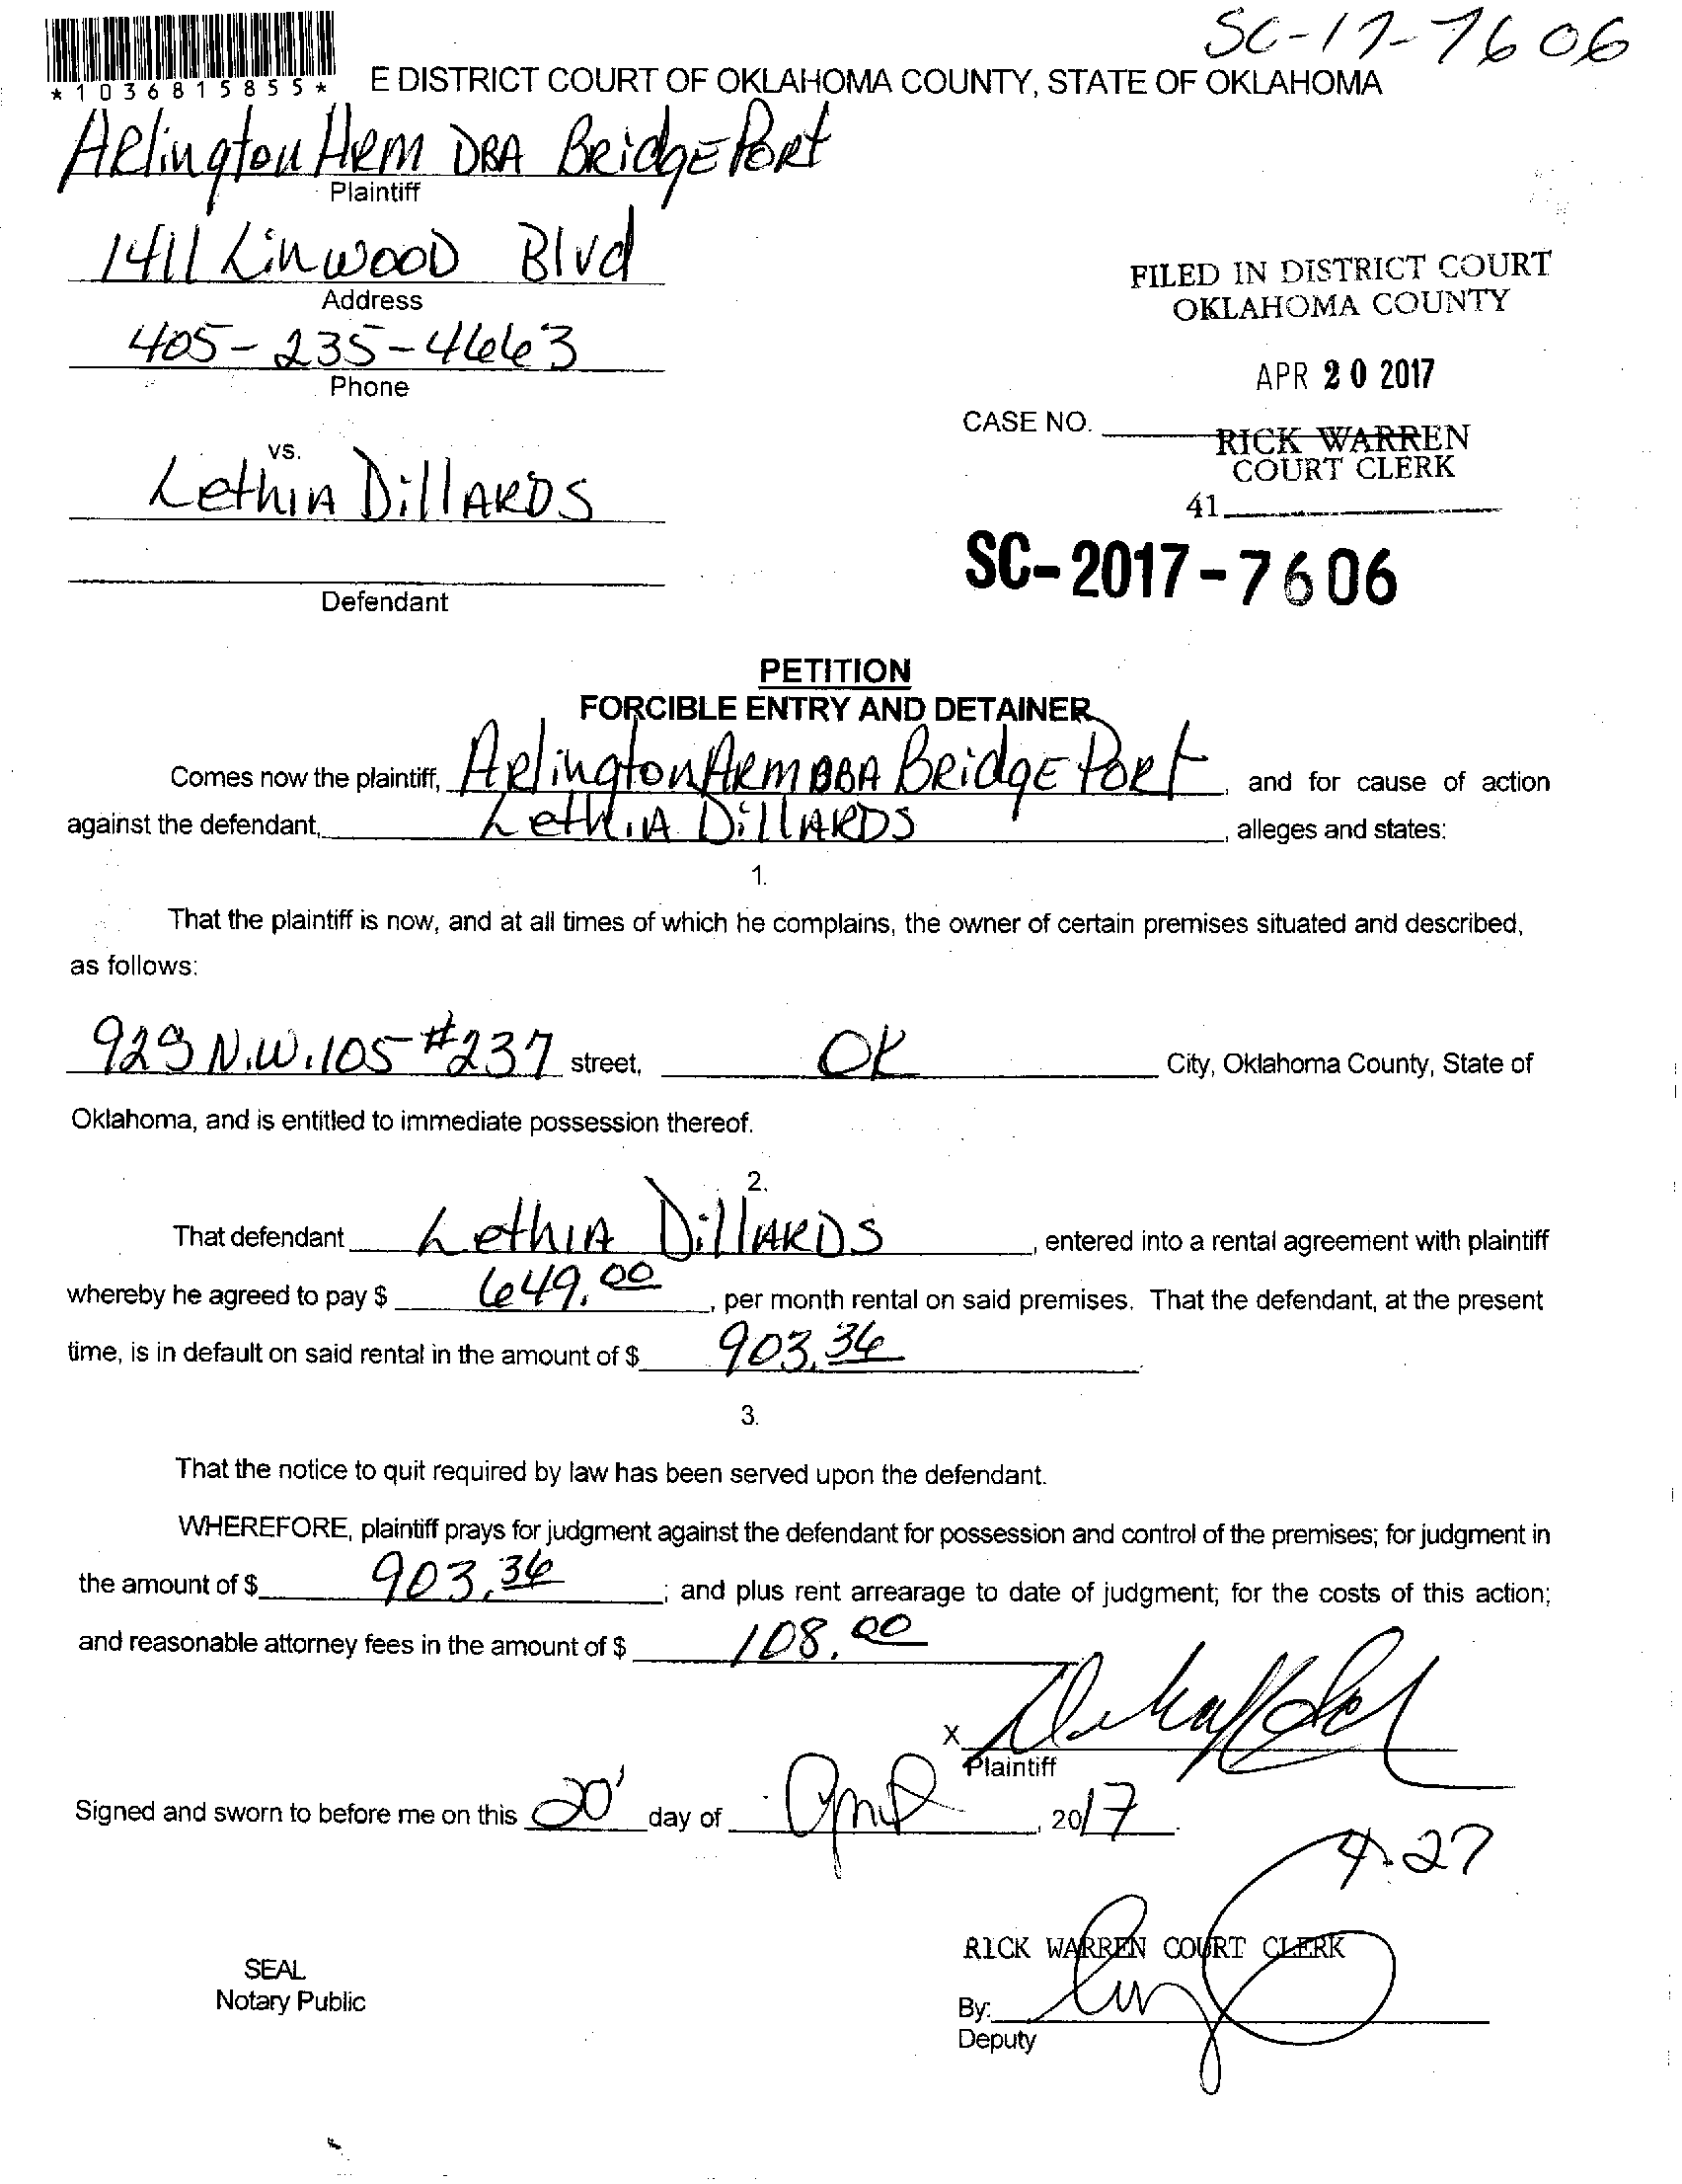 SC-17-7606
*1036815855*
E DISTRICT COURT OF OKLAHOMA COUNTY, STATE OF OKLAHOMA
Arlington Arm DBA BridgePort
Plaintiff
1411 Linwood Blvd
Address
405-235-4663
Phone
FILED IN DISTRICT COURT
OKLAHOMA COUNTY
APR 20 2017
CASE NO.
RICK WARREN
COURT CLERK
41
vs.
Lethia Dillards
Defendant
SC-2017-7606
PETITION
FORCIBLE ENTRY AND DETAINER
Comes now the plaintiff, Arlington Arm DBA BridgePort, and for cause of action
against the defendant, Lethia Dillards, alleges and states:
1.
That the plaintiff is now, and at all times of which he complains, the owner of certain premises situated and described,
as follows:
929 N.W. 105 #237 street, OK City, Oklahoma County, State of
Oklahoma, and is entitled to immediate possession thereof.
2.
That defendant Lethia Dillards, entered into a rental agreement with plaintiff
whereby he agreed to pay $ 649.00, per month rental on said premises. That the defendant, at the present
time, is in default on said rental in the amount of $ 903.36.
3.
That the notice to quit required by law has been served upon the defendant.
WHEREFORE, plaintiff prays for judgment against the defendant for possession and control of the premises; for judgment in
the amount of $ 903.36; and plus rent arrearage to date of judgment; for the costs of this action;
and reasonable attorney fees in the amount of $ 108.00
X
Plaintiff
Signed and sworn to before me on this 20' day of April, 2017.
4-27
RICK WARREN COURT CLERK
SEAL
Notary Public
By:
Deputy